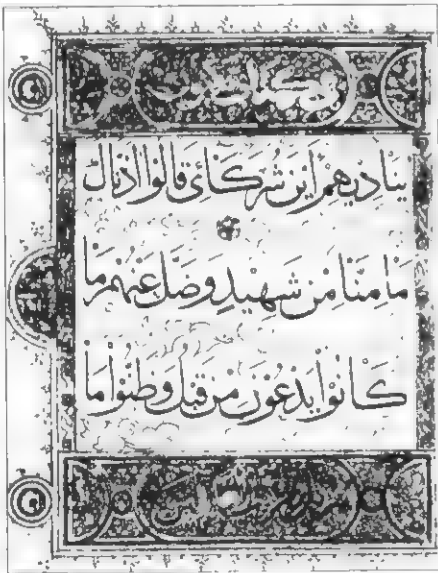 في كتاب مكنون
يُنَادِيهِمْ أَيْنَ شُرَكَائِي قَالُوا اٰذَنَّاكَ
مَا مِنَّا مِنْ شَهِيدٍ وَضَلَّ عَنْهُمْ مَا
كَانُوا يَدْعُونَ مِنْ قَبْلُ وَظَنُّوا مَا